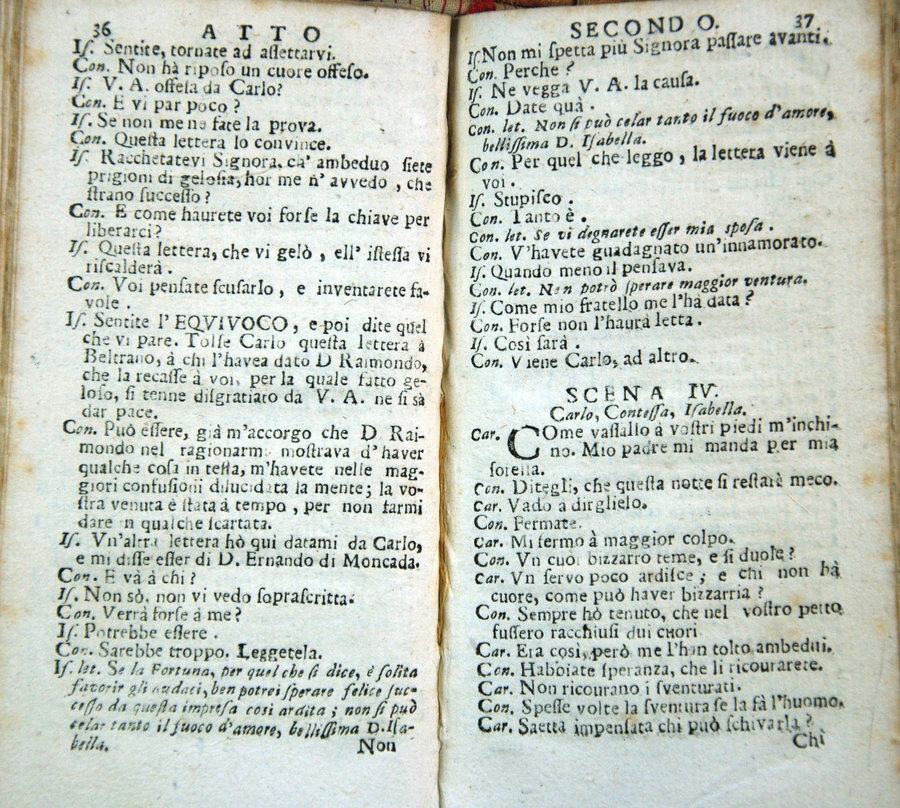 36 ATTO
Iſ. Sentite, tornate ad aſſettarvi.
Con. Non hà ripoſo un cuore offeſo.
Iſ. V. A. offeſa da Carlo?
Con. E vi par poco ?
Iſ. Se non me ne fate la prova.
Con. Queſta lettera lo convince.
Iſ. Racchetatevi Signora, ch' ambeduo ſiete
prigioni di geloſia, hor me n' avvedo , che
ſtrano ſucceſſo ?
Con. E come haurete voi forſe la chiave per
liberarci?
Iſ. Queſta lettera, che vi gelò , ell' iſteſſa vi
riſcalderà .
Con. Voi penſate ſcuſarlo , e inventarete fa-
vole .
Iſ. Sentite l'EQVIVOCO, e poi dite quel
che vi pare. Tolſe Carlo queſta lettera à
Beltrano, à chi l'havea dato D Raimondo,
che la recaſſe à voi, per la quale fatto ge-
loſo, ſi tenne diſgratiato da V. A. ne ſi sà
dar pace.
Con. Può eſſere, già m'accorgo che D Rai-
mondo nel ragionarmi moſtrava d'haver
qualche coſa in teſta, m'havete nelle mag-
giori confuſioni dilucidata la mente; la vo-
ſtra venuta è ſtata à tempo , per non farmi
dare in qualche ſcartata.
Iſ. Vn'altra lettera hò qui datami da Carlo,
e mi diſſe eſſer di D. Ernando di Moncada.
Con. E và à chi ?
Iſ. Non sò, non vi vedo ſopraſcritta.
Con. Verrà forſe à me?
Iſ. Potrebbe eſſere .
Con. Sarebbe troppo. Leggetela.
Iſ. let. Se la Fortuna, per quel che ſi dice, è ſolita
favorir gli audaci, ben potrei ſperare felice ſuc-
ceſſo da queſta impreſa così ardita ; non ſi può
celar tanto il fuoco d'amore, belliſſima D. Iſa-
bella.
Non
SECONDO. 37
Iſ. Non mi ſpetta più Signora paſſare avanti.
Con. Perche ?
Iſ. Ne vegga V. A. la cauſa.
Con. Date quà .
Con. let. Non ſi può celar tanto il fuoco d'amore,
belliſſima D. Iſabella.
Con. Per quel che leggo , la lettera viene à
voi .
Iſ. Stupiſco .
Con. Tanto è .
Con. let. Se vi degnarete eſſer mia ſpoſa .
Con. V'havete guadagnato un'innamorato.
Iſ. Quando meno il penſava.
Con. let. Non potrò ſperare maggior ventura.
Iſ. Come mio fratello me l'hà data ?
Con. Forſe non l'haurà letta .
Iſ. Così ſarà .
Con. Viene Carlo, ad altro.
SCENA IV.
Carlo, Conteſſa, Iſabella.
Car. COme vaſſallo à voſtri piedi m'inchi-
no. Mio padre mi manda per mia
ſorella.
Con. Ditegli, che queſta notte ſi reſtarà meco.
Car. Vado a dirglielo.
Con. Fermate.
Car. Mi fermo à maggior colpo.
Con. Vn cuor bizzarro teme, e ſi duole ?
Car. Vn ſervo poco ardiſce ; e chi non hà
cuore, come può haver bizzarria ?
Con. Sempre hò tenuto, che nel voſtro petto
fuſſero racchiuſi dui cuori
Car. Era così, però me l'han tolto ambedui.
Con. Habbiate ſperanza, che li ricourarete.
Car. Non ricourano i ſventurati.
Con. Speſſe volte la ſventura ſe la fà l'huomo.
Car. Saetta impenſata chi può ſchivarla ?
Chi